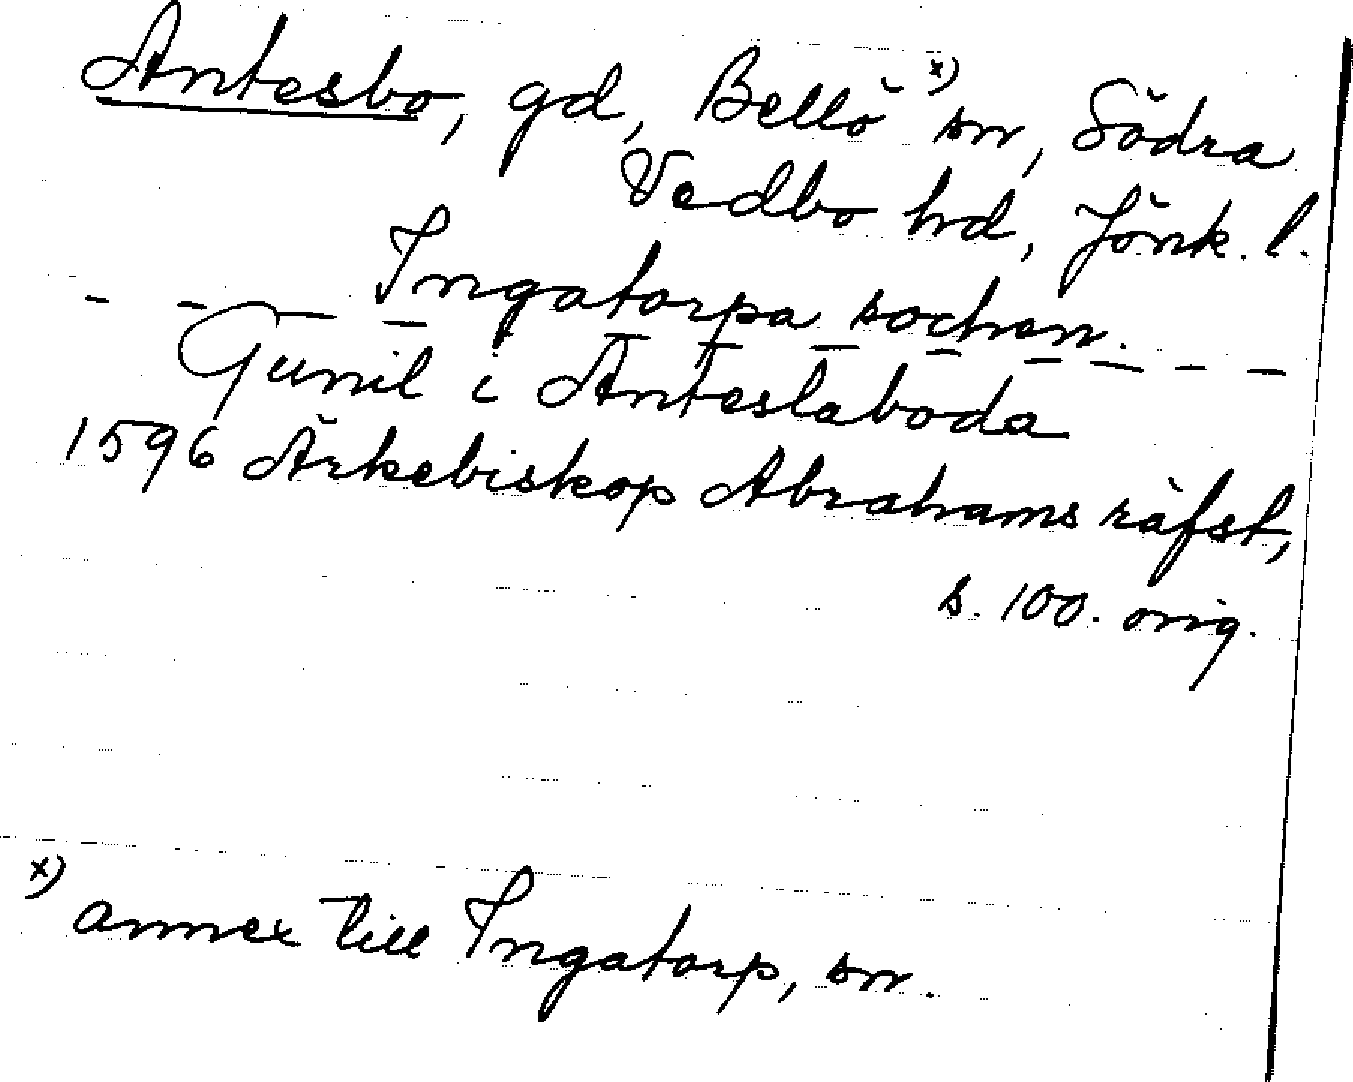 Antesbo, gd, Bellö x) sn, Södra
Vedbo hd, Jönk. l.
Ingatorpa sochen.
Gunil i Anteslaboda
1596 Ärkebiskop Abrahams räfst,
s. 100. orig.
x) annex till Ingatorp, sn.